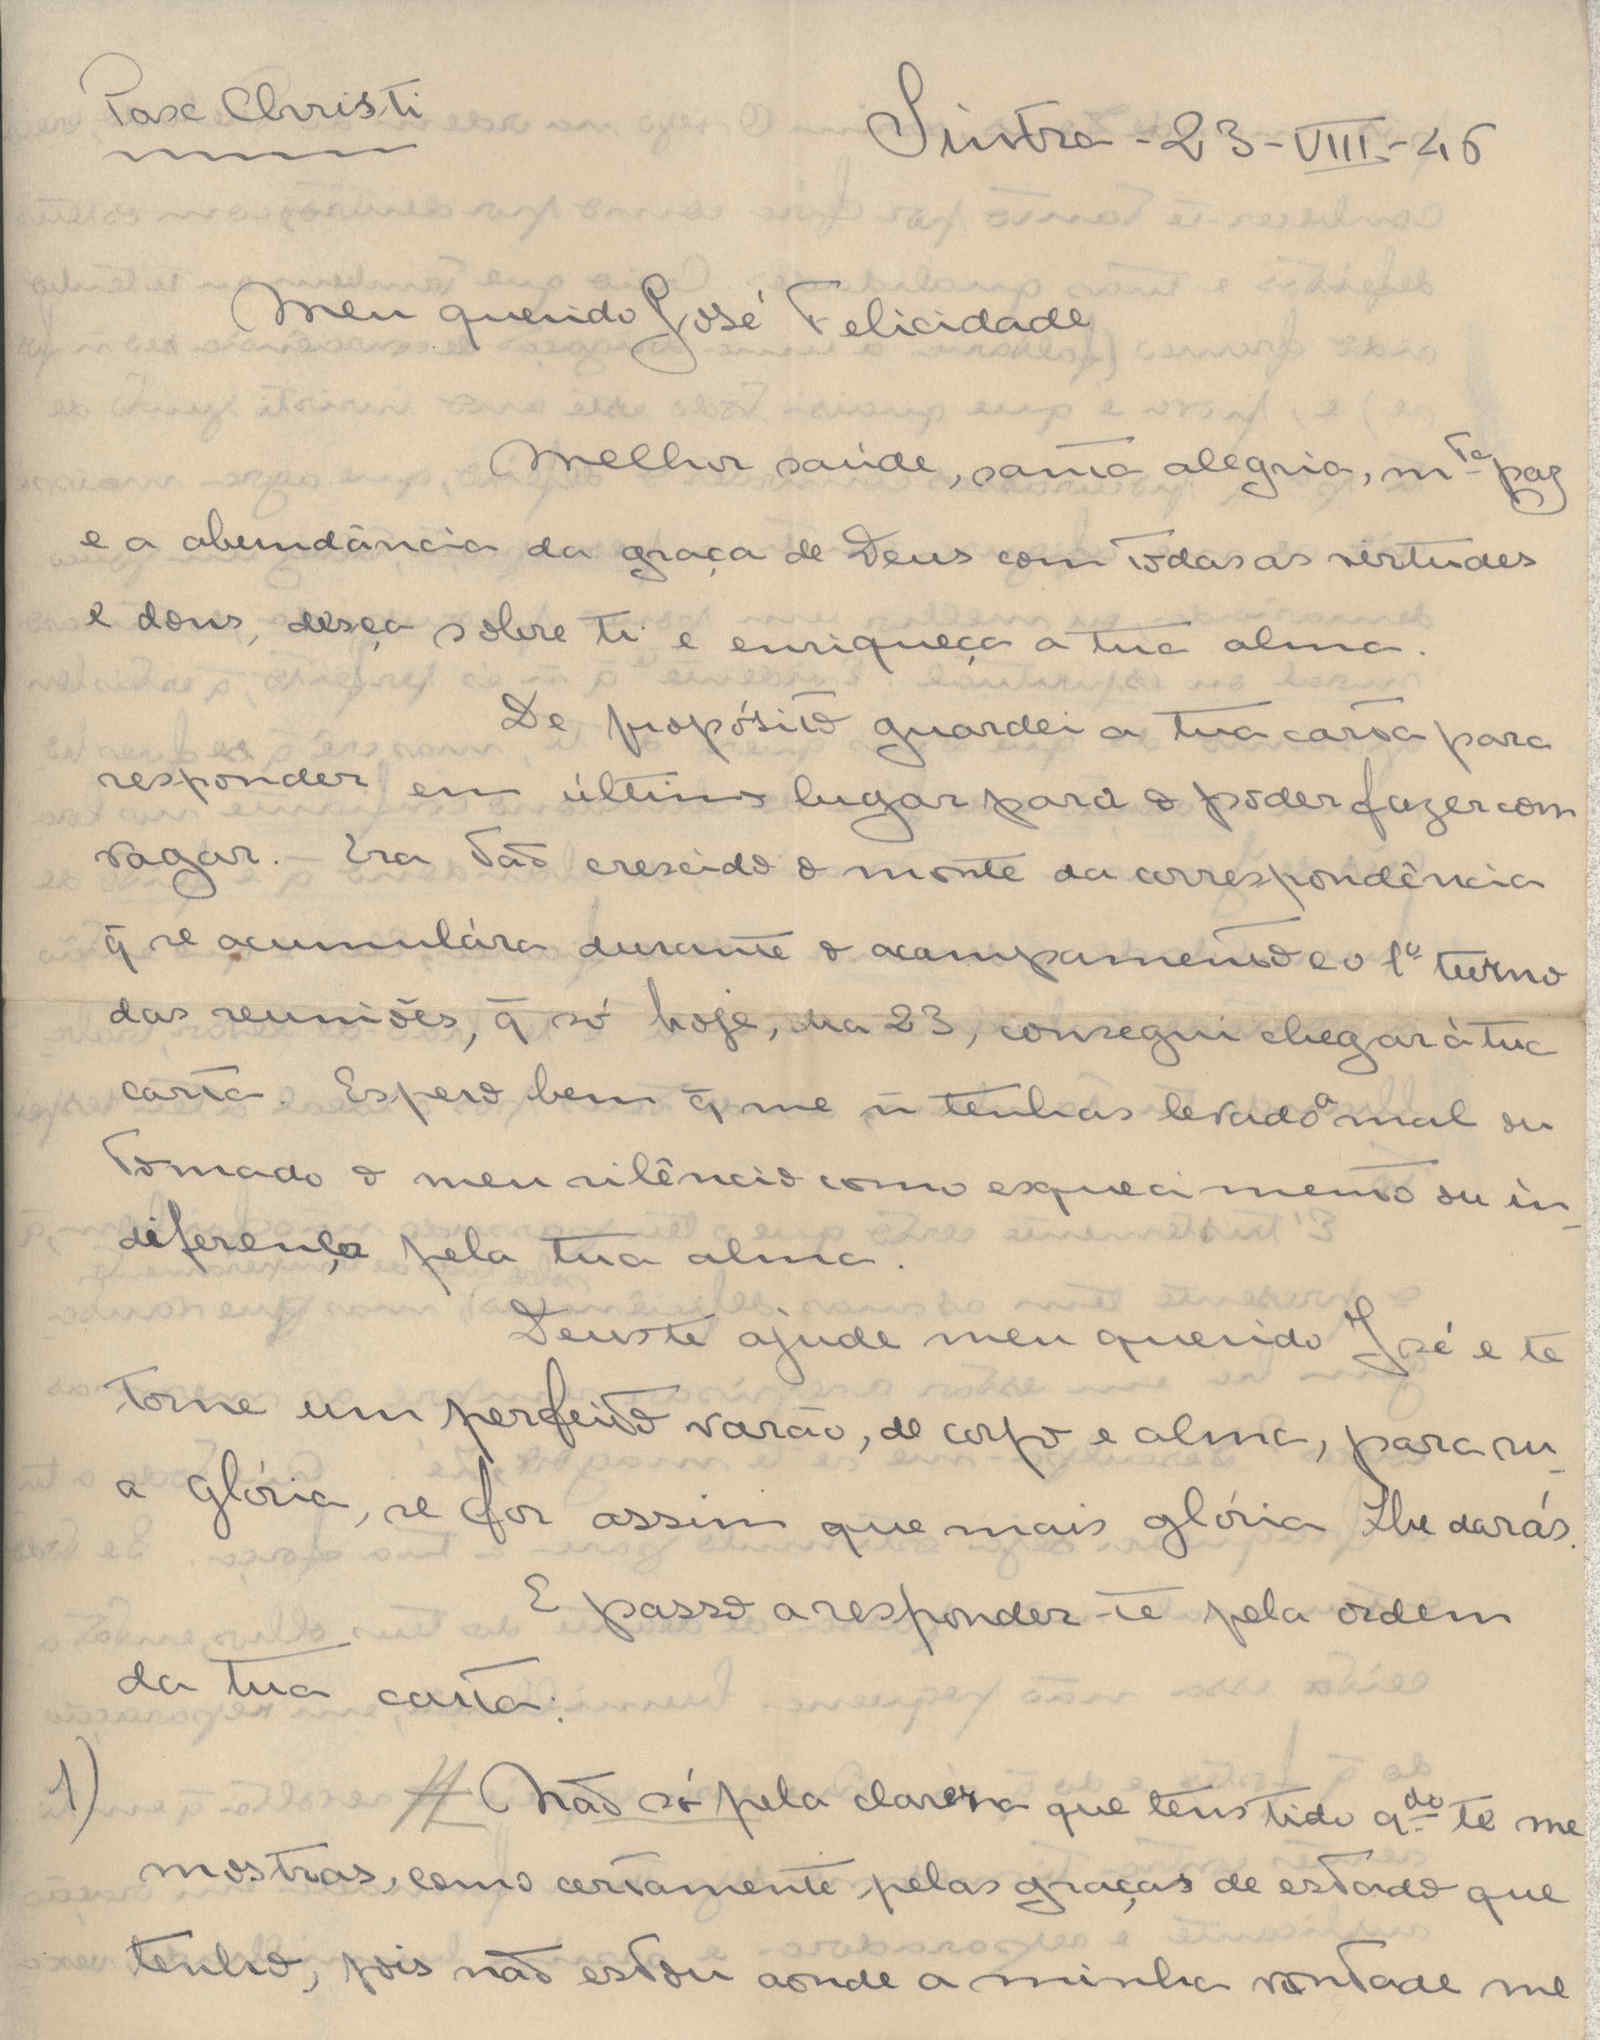 Pax Christi
Sintra - 23 - VIII - 46
Meu querido José Felicidade
Melhor saúde, santa alegria, mta paz
e a abundância da graça de Deus com todas as virtudes
e dons, desça sobre ti e enriqueça a tua alma.
De propósito guardei a tua carta para
responder em último lugar para o poder fazer com
vagar. - Era tão crescido o monte da correspondência
q̄ se acumulára durante o acampamento e o 1º turno
das reuniões, q̄ só hoje, dia 23, consegui chegar à tua
carta. Espero bem q̄ me ñ tenhas levado a mal ou
tomado o meu silêncio como esquecimento ou in-
diferença pela tua alma.
Deus te ajude meu querido José e te
torne um perfeito varão, de corpo e alma, para su-
a glória, se for assim que mais glória Lhe darás.
E passo a responder-te pela ordem
da tua carta:
1) // Não só pela clareza que tens tido qdo te me
mostras, como certamente pelas graças de estado que
tenho, pois não estou aonde a minha vontade me